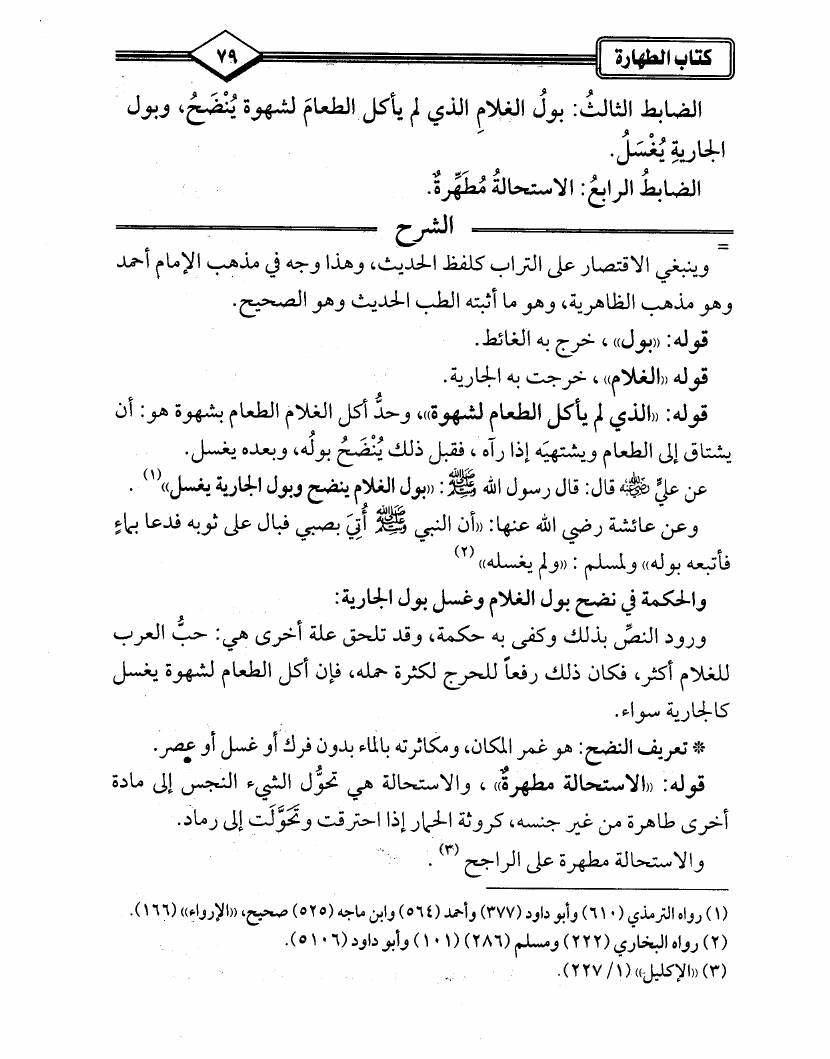 كتاب الطهارة
٧٩
الضابط الثالثُ: بولُ الغلامِ الذي لم يأكل الطعامَ لشهوة يُنْضَحُ، وبول
الجاريةِ يُغْسَلُ.
الضابطُ الرابعُ: الاستحالةُ مُطَهِّرةٌ.
الشرح
=
وينبغي الاقتصار على التراب كلفظ الحديث، وهذا وجه في مذهب الإمام أحمد
وهو مذهب الظاهرية، وهو ما أثبته الطب الحديث وهو الصحيح.
قوله: «بول»، خرج به الغائط.
قوله «الغلام»، خرجت به الجارية.
قوله: «الذي لم يأكل الطعام لشهوة»، وحدُّ أكل الغلام الطعام بشهوة هو: أن
يشتاق إلى الطعام ويشتهيَه إذا رآه، فقبل ذلك يُنْضَحُ بولُه، وبعده يغسل.
عن عليٍّ رضي الله عنه قال: قال رسول الله ﷺ: «بول الغلام ينضح وبول الجارية يغسل»(١).
وعن عائشة رضي الله عنها: «أن النبي ﷺ أُتِيَ بصبي فبال على ثوبه فدعا بماءٍ
فأتبعه بوله» ولمسلم: «ولم يغسله»(٢)
والحكمة في نضح بول الغلام وغسل بول الجارية:
ورود النصِّ بذلك وكفى به حكمة، وقد تلحق علة أخرى هي: حبُّ العرب
للغلام أكثر، فكان ذلك رفعاً للحرج لكثرة حمله، فإن أكل الطعام لشهوة يغسل
كالجارية سواء.
* تعريف النضح: هو غمر المكان، ومكاثرته بالماء بدون فرك أو غسل أو عصر.
قوله: «الاستحالة مطهرةٌ»، والاستحالة هي تحوُّل الشيء النجس إلى مادة
أخرى طاهرة من غير جنسه، كروثة الحمار إذا احترقت وتَحَوَّلَت إلى رماد.
والاستحالة مطهرة على الراجح(٣).
(١) رواه الترمذي (٦١٠) وأبو داود (٣٧٧) وأحمد (٥٦٤) وابن ماجه (٥٢٥) صحيح، «الإرواء» (١٦٦).
(٢) رواه البخاري (٢٢٢) ومسلم (٢٨٦) (١٠١) وأبو داود (٥١٠٦).
(٣) «الإكليل» (١/ ٢٢٧).